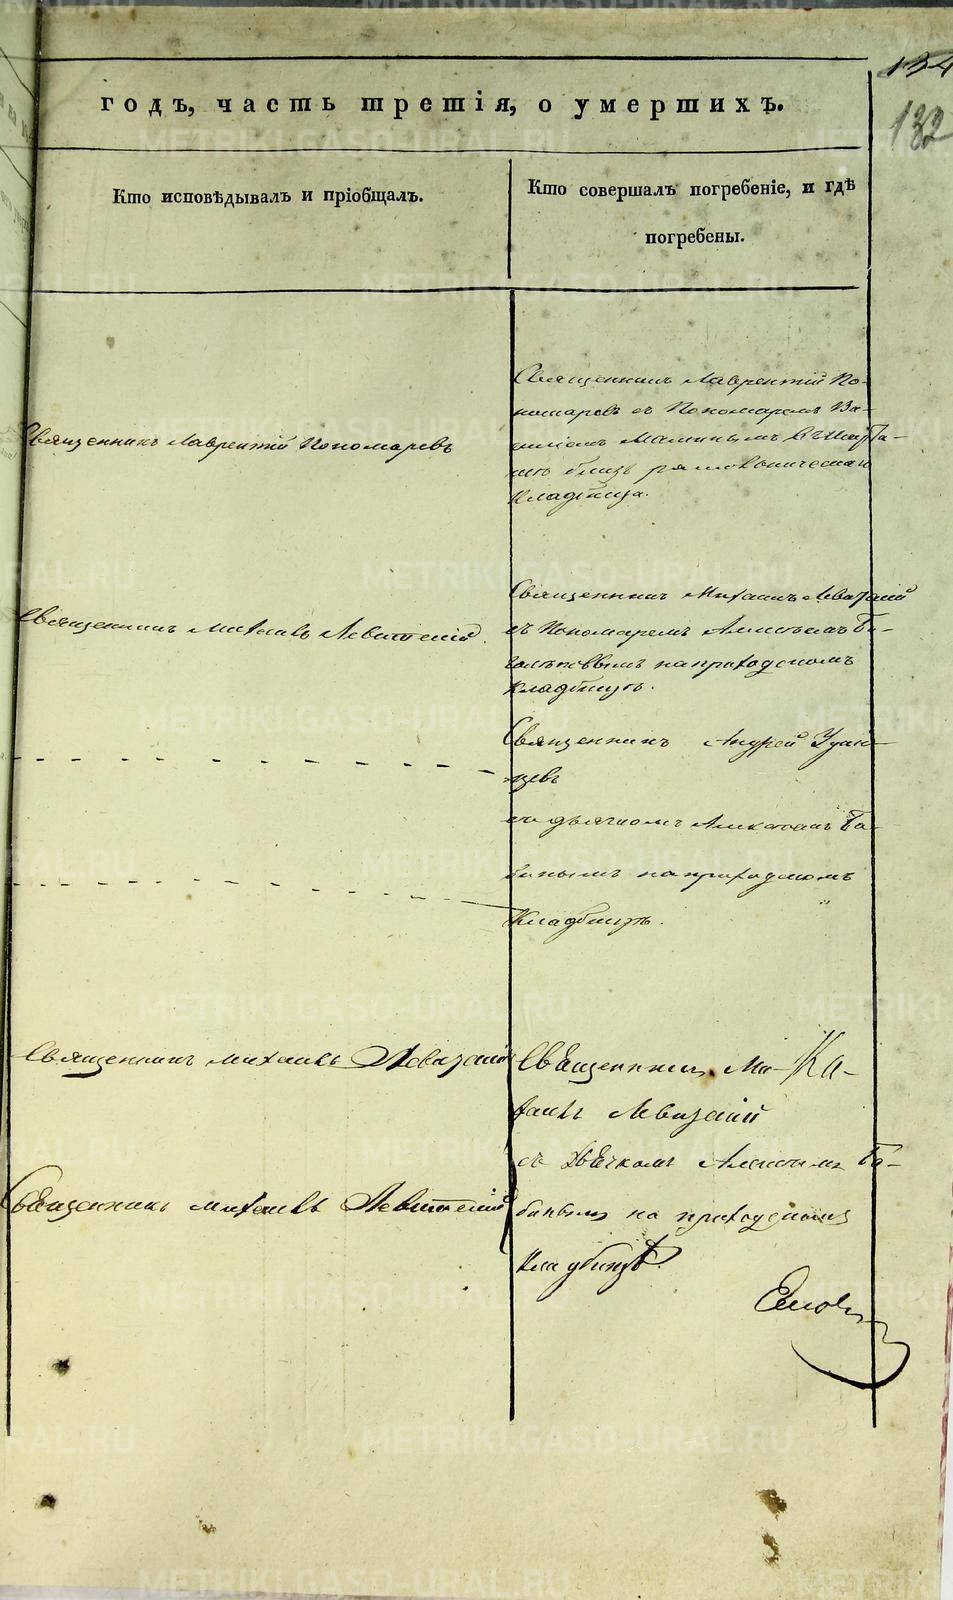 134
132
годъ, часть третія, о умершихъ.
Кто исповѣдывалъ и пріобщалъ.
Кто совершалъ погребеніе, и гдѣ
погребены.
Священникъ Лаврентій По-
номаревъ съ Пономаремъ Ва-
Священникъ Лаврентій Пономаревъ
силіемъ Малинымъ
близь
кладбища.
Священникъ Михаилъ Левитскій
Священникъ Михаилъ Левитскій
съ Пономаремъ
на приходскомъ
кладбищѣ.
Священникъ Андрей
съ дьячкомъ Алексѣемъ Ба-
бинымъ на приходскомъ
кладбищѣ.
Священникъ Михаилъ Левитскій
Священникъ Ми-
хаилъ Левитскій
съ Дьячкомъ Алексѣемъ Ба-
Священникъ Михаилъ Левитскій
бинымъ на приходскомъ
кладбищѣ.
METRIKI.GASO-URAL.RU